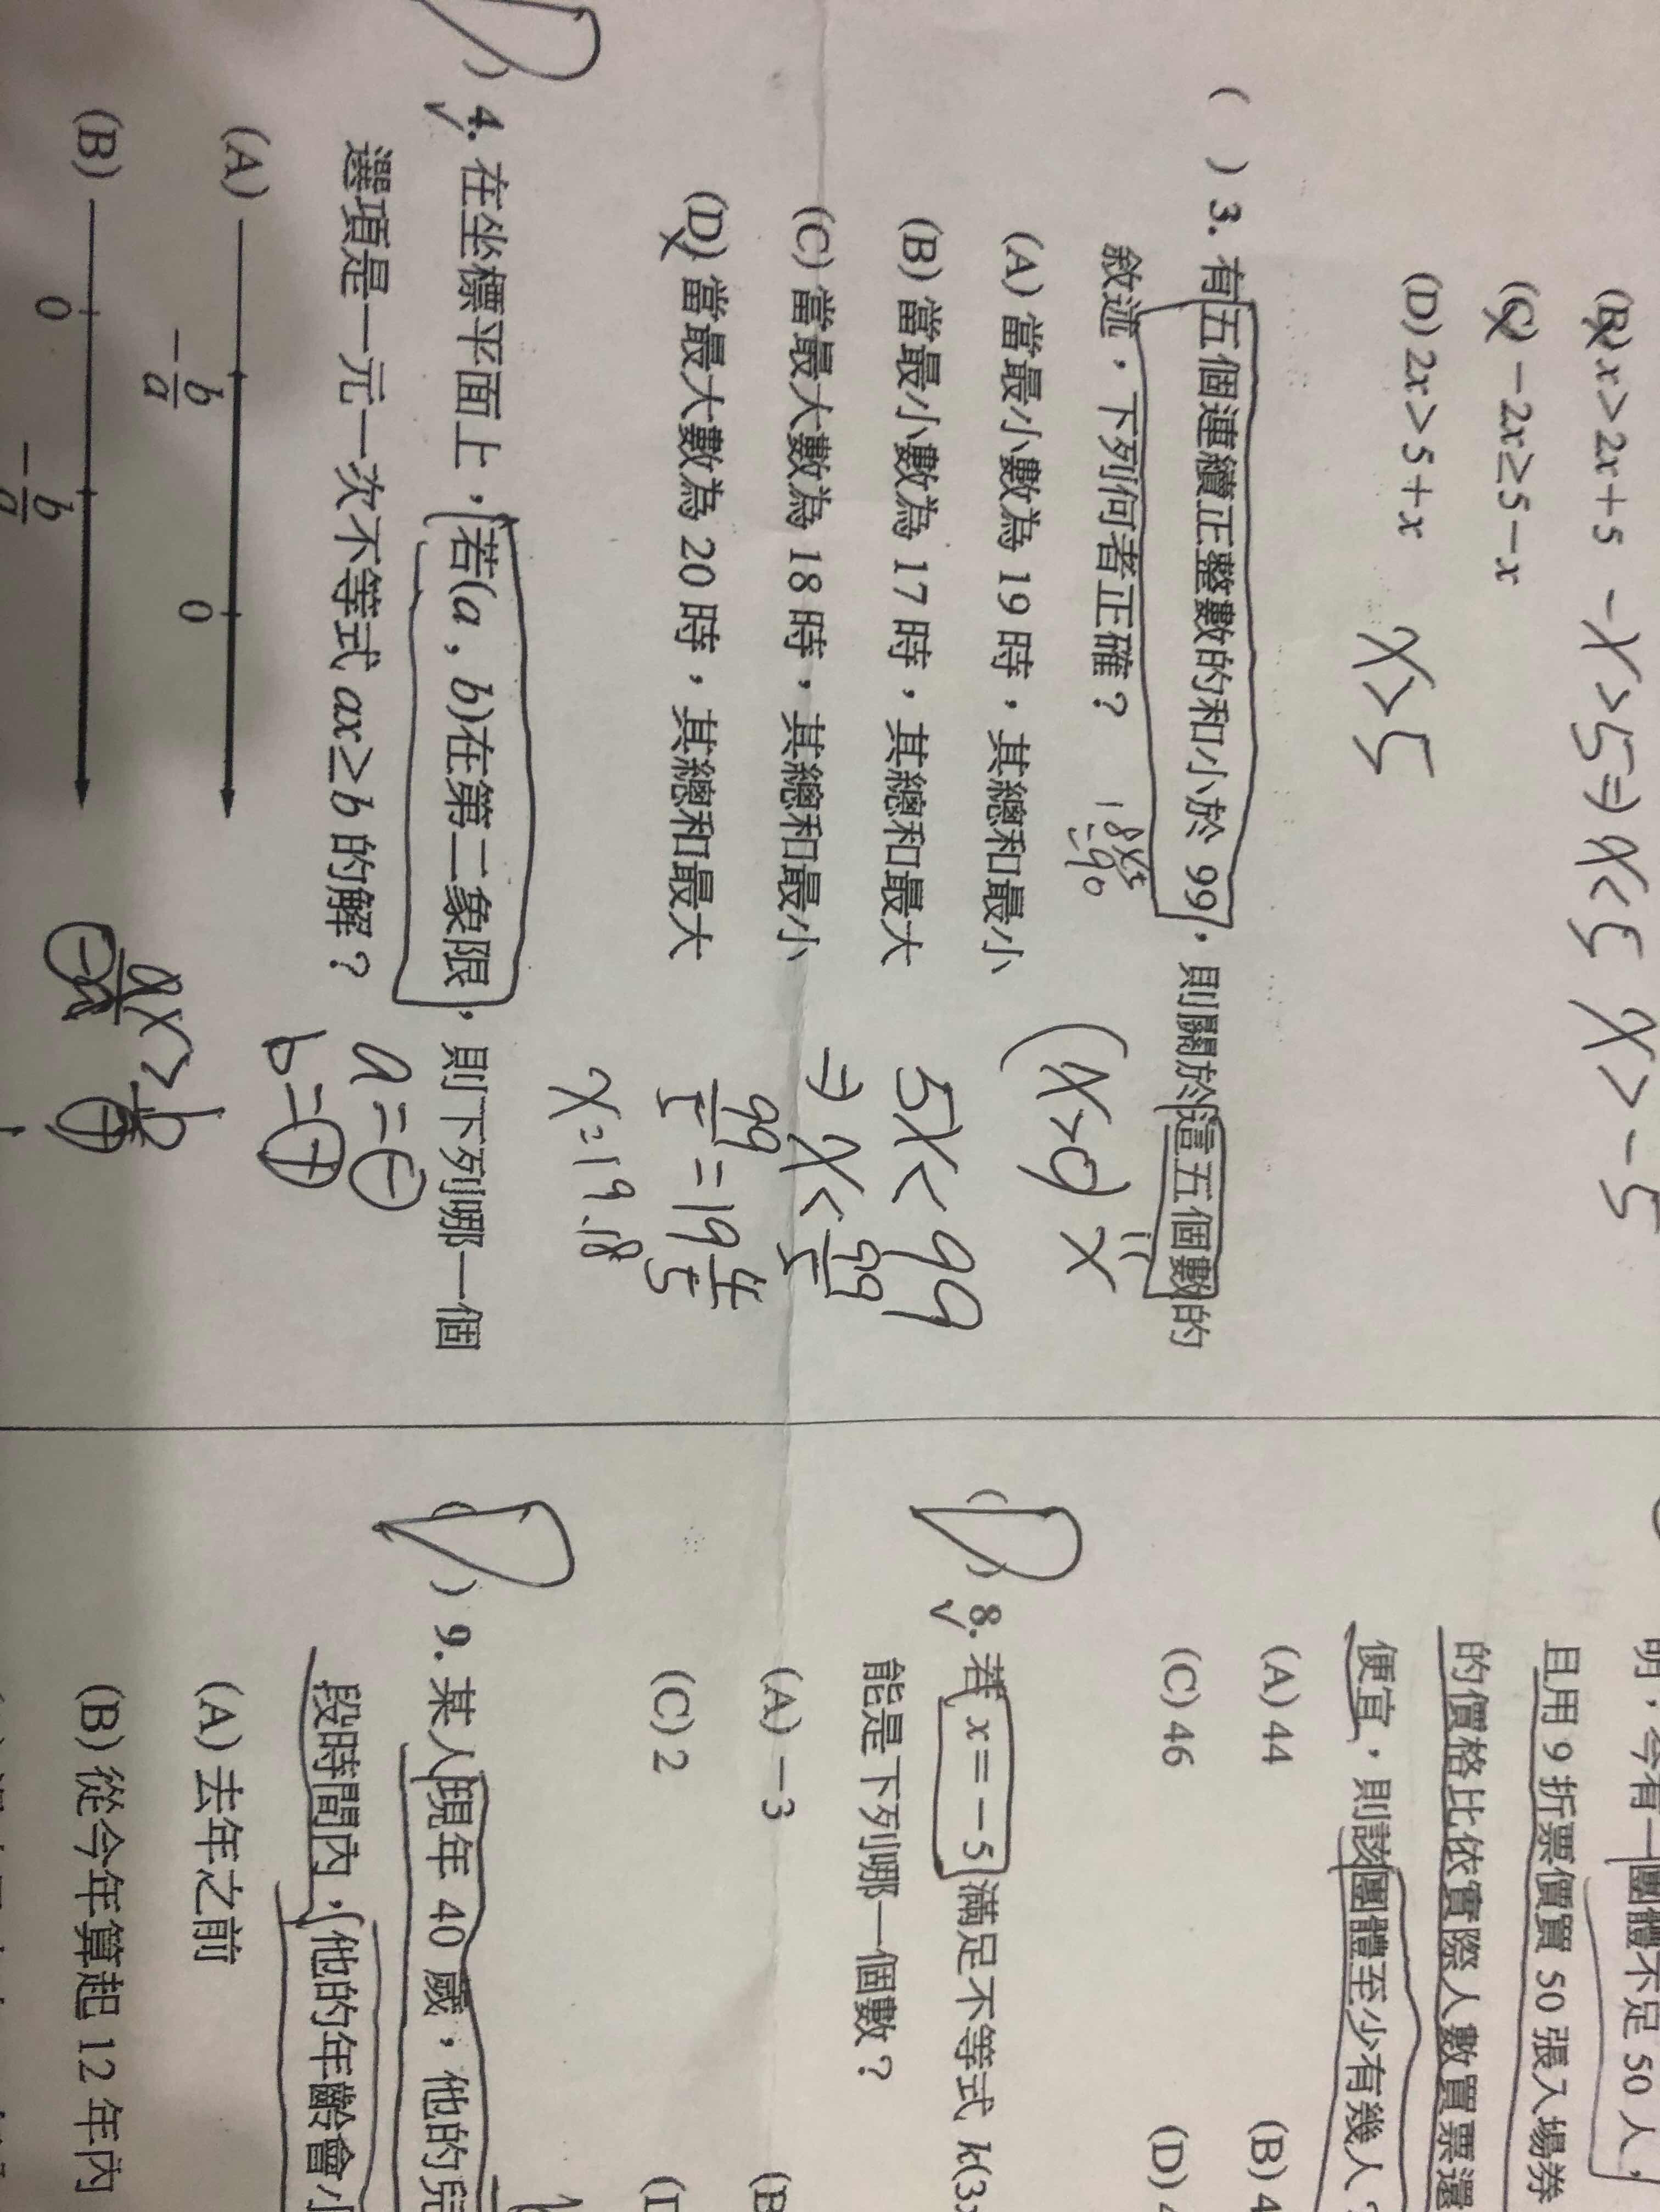 (B) x>2x+5 -x>5⇒x<5 x>-5
(C) -2x≥5-x
(D) 2x>5+x x>5
( ) 3. 有五個連續正整數的和小於 99,則關於這五個數的
敘述,下列何者正確?
18x5
=90
(x>0) x
(A) 當最小數為 19 時,其總和最小
(B) 當最小數為 17 時,其總和最大
(C) 當最大數為 18 時,其總和最小
(D) 當最大數為 20 時,其總和最大
5x<99
⇒x<99/5
99/5=19 4/5
x=19.8
) 4. 在坐標平面上,若(a,b)在第二象限,則下列哪一個
選項是一元一次不等式 ax≥b 的解?
a=⊖
b=⊕
(A) -b/a 0
(B) 0 -b/a
明,今有一團體不足 50 人,
且用 9 折票價買 50 張入場券
的價格比依實際人數買票還
便宜,則該團體至少有幾人?
(A) 44 (B) 4
(C) 46 (D) 4
( ) 8. 若 x=-5 滿足不等式 k(3x
能是下列哪一個數?
(A) -3 (B
(C) 2 (D
( ) 9. 某人現年 40 歲,他的兒
段時間內,他的年齡會小
(A) 去年之前
(B) 從今年算起 12 年內